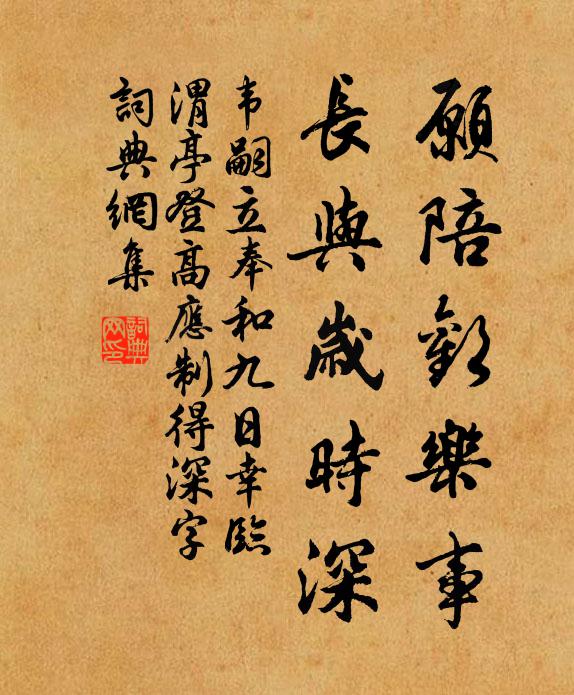 願陪歡樂事
長與歲時深
韦嗣立奉和九日幸臨
渭亭登高應制得深字
詞典網集
詞典網印